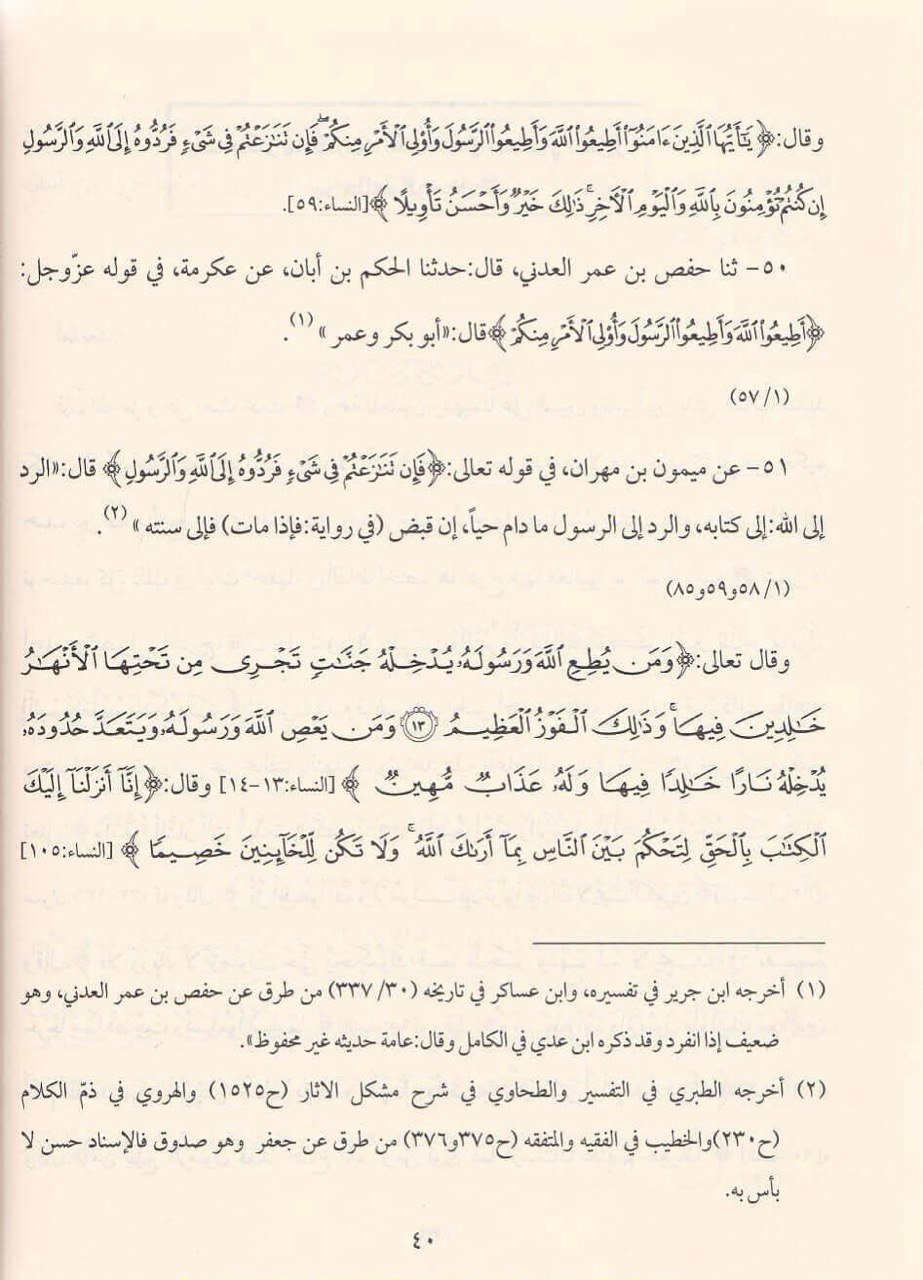 وقال:﴿يَٰٓأَيُّهَا ٱلَّذِينَ ءَامَنُوٓاْ أَطِيعُواْ ٱللَّهَ وَأَطِيعُواْ ٱلرَّسُولَ وَأُوْلِي ٱلۡأَمۡرِ مِنكُمۡۖ فَإِن تَنَٰزَعۡتُمۡ فِي شَيۡءٖ فَرُدُّوهُ إِلَى ٱللَّهِ وَٱلرَّسُولِ
إِن كُنتُمۡ تُؤۡمِنُونَ بِٱللَّهِ وَٱلۡيَوۡمِ ٱلۡأٓخِرِۚ ذَٰلِكَ خَيۡرٞ وَأَحۡسَنُ تَأۡوِيلًا﴾[النساء:٥٩].
٥٠- ثنا حفص بن عمر العدني، قال:حدثنا الحكم بن أبان، عن عكرمة، في قوله عزّوجل:
﴿أَطِيعُواْ ٱللَّهَ وَأَطِيعُواْ ٱلرَّسُولَ وَأُوْلِي ٱلۡأَمۡرِ مِنكُمۡ﴾قال:«أبو بكر وعمر»(١).
(٥٧/١)
٥١- عن ميمون بن مهران، في قوله تعالى:﴿فَإِن تَنَٰزَعۡتُمۡ فِي شَيۡءٖ فَرُدُّوهُ إِلَى ٱللَّهِ وَٱلرَّسُولِ﴾ قال:«الرد
إلى الله:إلى كتابه، والرد إلى الرسول ما دام حياً، إن قبض (في رواية:فإذا مات) فإلى سنته»(٢).
(٥٨/١و٥٩و٨٥)
وقال تعالى:﴿وَمَن يُطِعِ ٱللَّهَ وَرَسُولَهُۥ يُدۡخِلۡهُ جَنَّٰتٖ تَجۡرِي مِن تَحۡتِهَا ٱلۡأَنۡهَٰرُ
خَٰلِدِينَ فِيهَاۚ وَذَٰلِكَ ٱلۡفَوۡزُ ٱلۡعَظِيمُ ١٣ وَمَن يَعۡصِ ٱللَّهَ وَرَسُولَهُۥ وَيَتَعَدَّ حُدُودَهُۥ
يُدۡخِلۡهُ نَارًا خَٰلِدٗا فِيهَا وَلَهُۥ عَذَابٞ مُّهِينٞ﴾[النساء:١٣-١٤] وقال:﴿إِنَّآ أَنزَلۡنَآ إِلَيۡكَ
ٱلۡكِتَٰبَ بِٱلۡحَقِّ لِتَحۡكُمَ بَيۡنَ ٱلنَّاسِ بِمَآ أَرَىٰكَ ٱللَّهُۚ وَلَا تَكُن لِّلۡخَآئِنِينَ خَصِيمٗا﴾[النساء:١٠٥]
(١) أخرجه ابن جرير في تفسيره، وابن عساكر في تاريخه (٣٠/ ٣٣٧) من طرق عن حفص بن عمر العدني، وهو
ضعيف إذا انفرد وقد ذكره ابن عدي في الكامل وقال:عامة حديثه غير محفوظ».
(٢) أخرجه الطبري في التفسير والطحاوي في شرح مشكل الاثار (ح١٥٢٥) والهروي في ذمّ الكلام
(ح٢٣٠)والخطيب في الفقيه والمتفقه (ح٣٧٥و٣٧٦) من طرق عن جعفر وهو صدوق فالإسناد حسن لا
بأس به.
٤٠